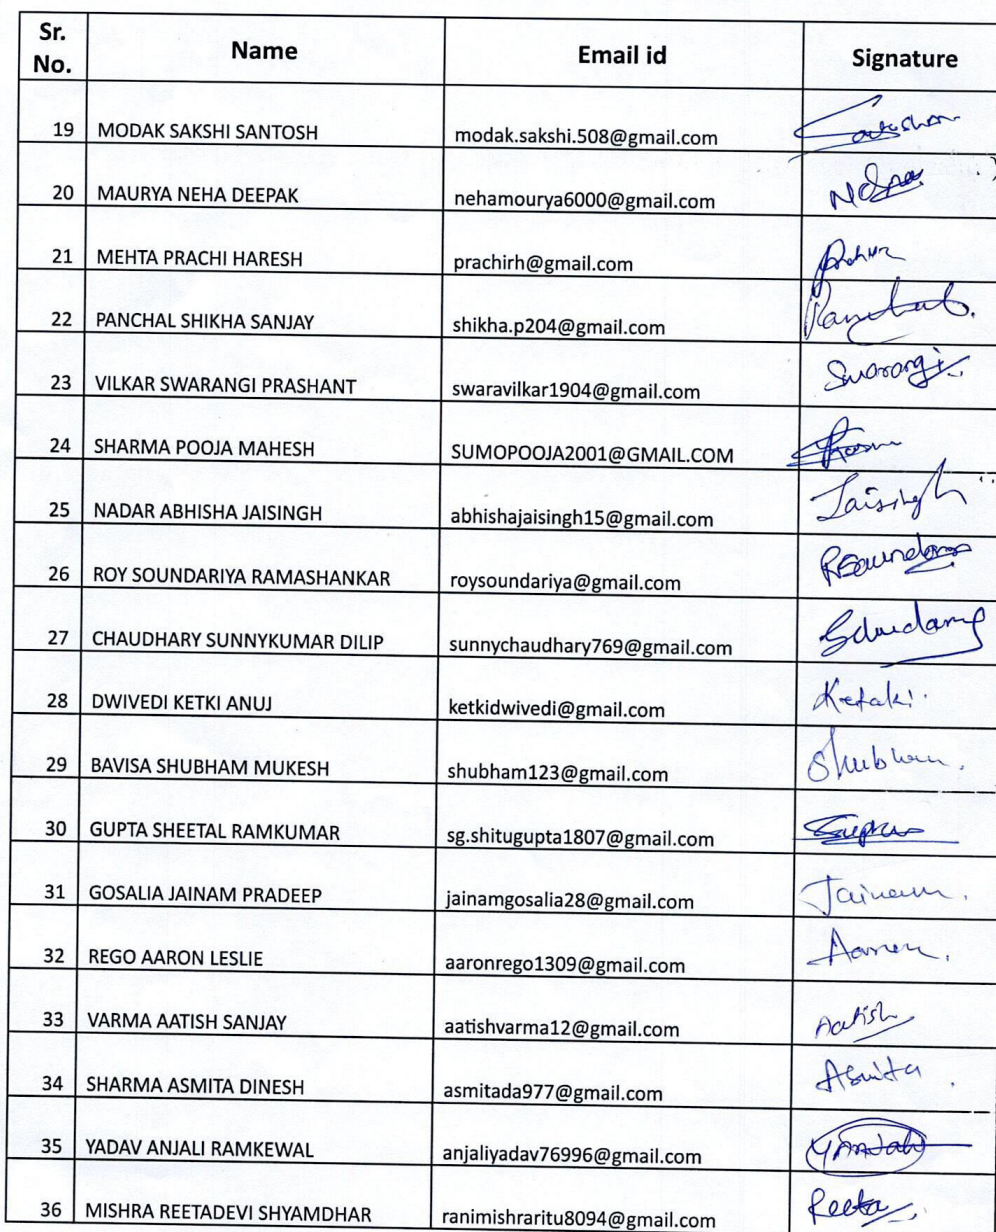 Sr. No. Name Email id Signature
19 MODAK SAKSHI SANTOSH modak.sakshi.508@gmail.com
20 MAURYA NEHA DEEPAK nehamourya6000@gmail.com Neha
21 MEHTA PRACHI HARESH prachirh@gmail.com
22 PANCHAL SHIKHA SANJAY shikha.p204@gmail.com Panchal.
23 VILKAR SWARANGI PRASHANT swaravilkar1904@gmail.com Swarangi
24 SHARMA POOJA MAHESH SUMOPOOJA2001@GMAIL.COM
25 NADAR ABHISHA JAISINGH abhishajaisingh15@gmail.com Jaisingh
26 ROY SOUNDARIYA RAMASHANKAR roysoundariya@gmail.com
27 CHAUDHARY SUNNYKUMAR DILIP sunnychaudhary769@gmail.com
28 DWIVEDI KETKI ANUJ ketkidwivedi@gmail.com Ketaki.
29 BAVISA SHUBHAM MUKESH shubham123@gmail.com Shubham.
30 GUPTA SHEETAL RAMKUMAR sg.shitugupta1807@gmail.com
31 GOSALIA JAINAM PRADEEP jainamgosalia28@gmail.com Jainam.
32 REGO AARON LESLIE aaronrego1309@gmail.com Aaron.
33 VARMA AATISH SANJAY aatishvarma12@gmail.com Aatish
34 SHARMA ASMITA DINESH asmitada977@gmail.com Asmita .
35 YADAV ANJALI RAMKEWAL anjaliyadav76996@gmail.com
36 MISHRA REETADEVI SHYAMDHAR ranimishraritu8094@gmail.com Reeta